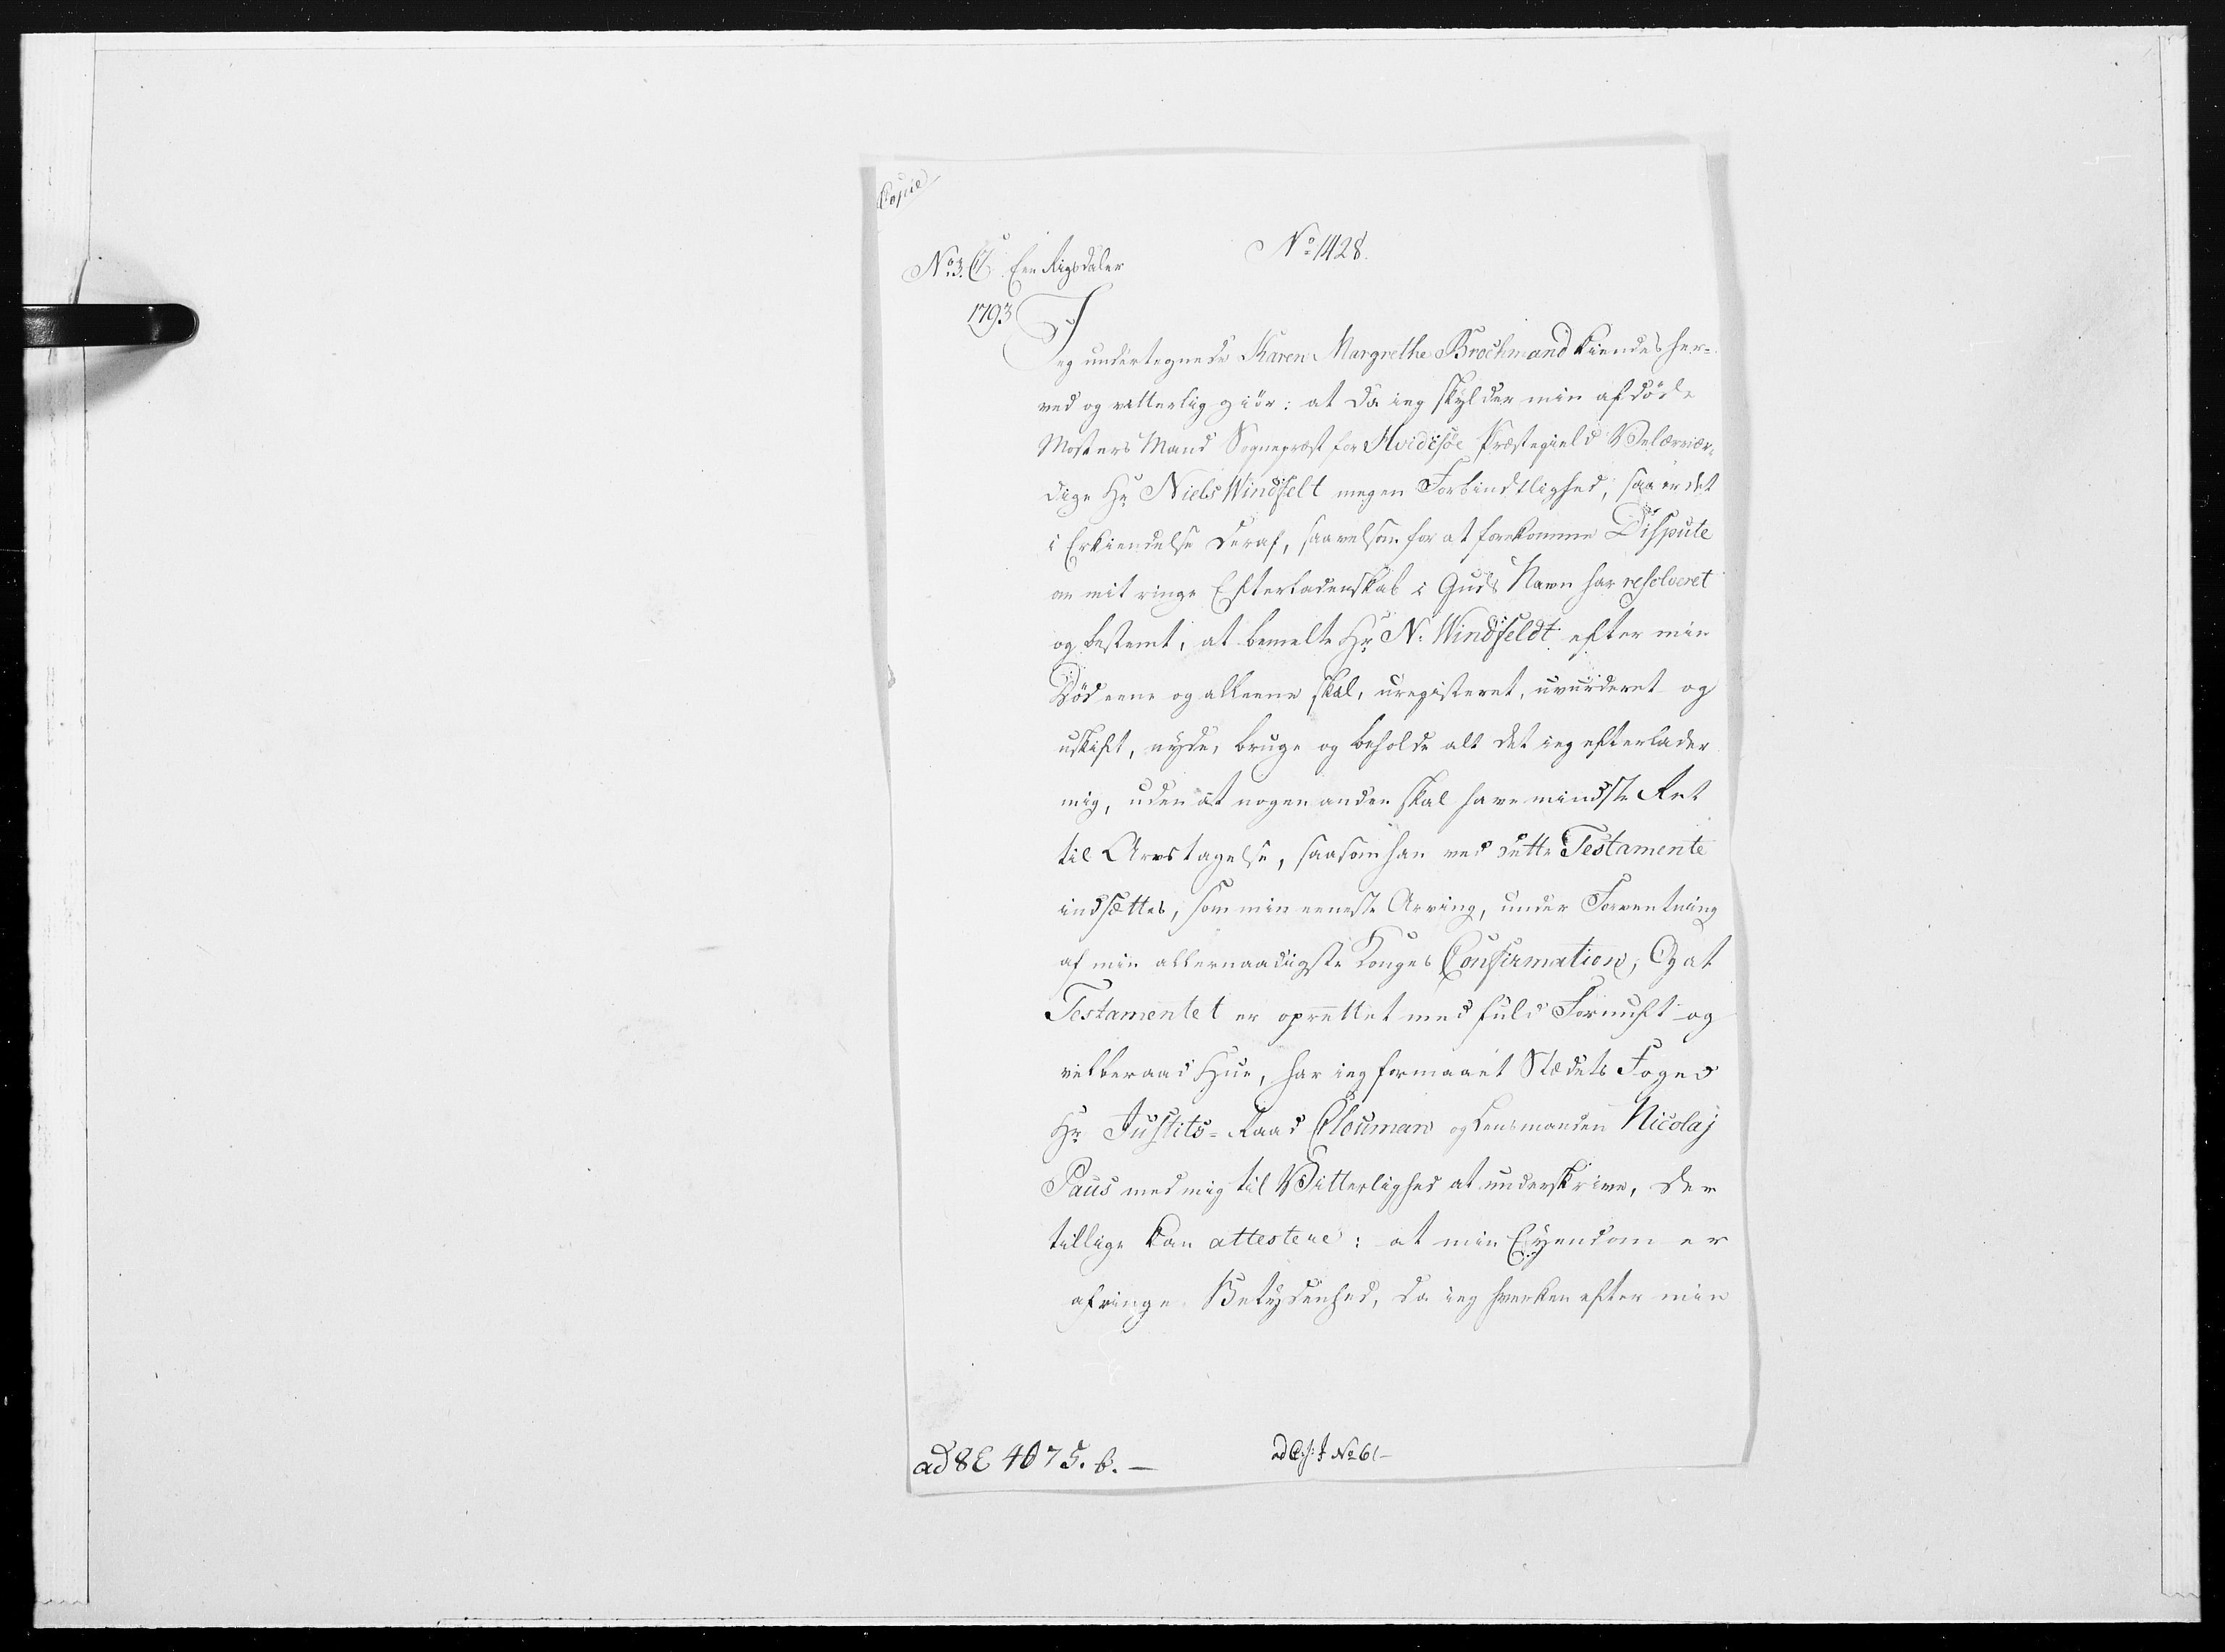 Copie
No 1428.
No 3. C7 Een Rigsdaler
1793
Jeg undertegnede Karen Margrethe Brochmand kiendes her-
ved og vitterlig giör: at da ieg skylder min afdöde
Mosters Mand Sognepræst for Hvidesöe Præstegield Velærvær-
dige Hr Niels Windfelt megen Forbindtlighed, saa er det
i Erkiendelse deraf, saavelsom for at forekomme Dispute
om mit ringe Efterladenskab i Guds Navn har resolveret
og bestemt, at bemelte Hr N. Windfeldt efter min
Död eene og alleene skal, uregisteret, uvurderet og
uskift, nyde, bruge og beholde alt det ieg efterlader
mig, uden at nogen anden skal have mindste Ret
til Arvstagelse, saasom han ved dette Testamente
indsættes, som min eeneste Arving, under Forventning
af min allernaadigste Konges Confirmation; Og at
Testamentet er oprettet med fuld Fornuft og
velberaad Hue, har ieg formaaet Stædets Foged
Hr Justits-Raad Clouman og Lensmanden Nicolaj
Paus med mig til Vitterlighed at underskrive, der
tillige kan attestere: at min Eyendom er
af ringe Betydenhed, da ieg hverken efter min
ad 8E 4075. b. —
No 61 —